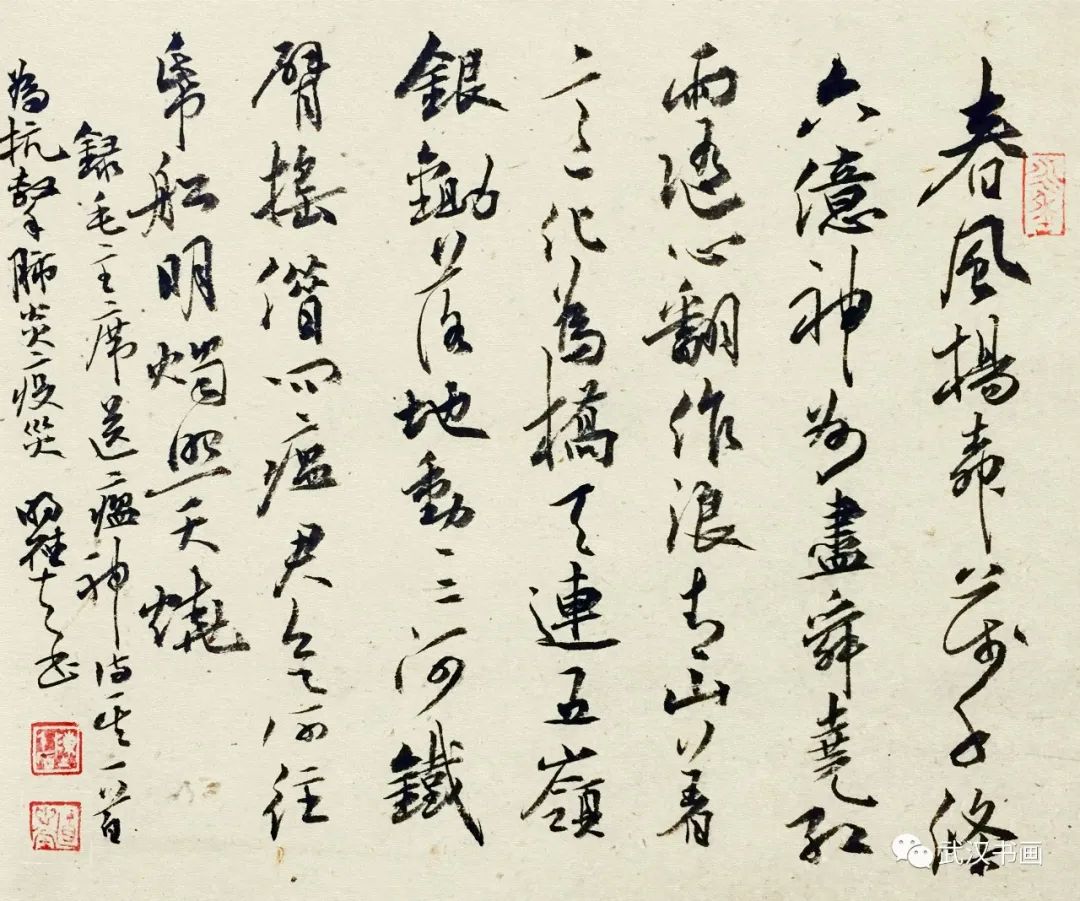 春風楊柳萬千條
六億神州盡舜堯紅
雨隨心翻作浪青山着
意化為橋天連五嶺
銀鋤落地動三河鐵
臂搖借問瘟君欲何往
帋船明燭照天燒
錄毛主席送瘟神詩其一首
為抗擊肺炎疫災 書
武汉书画